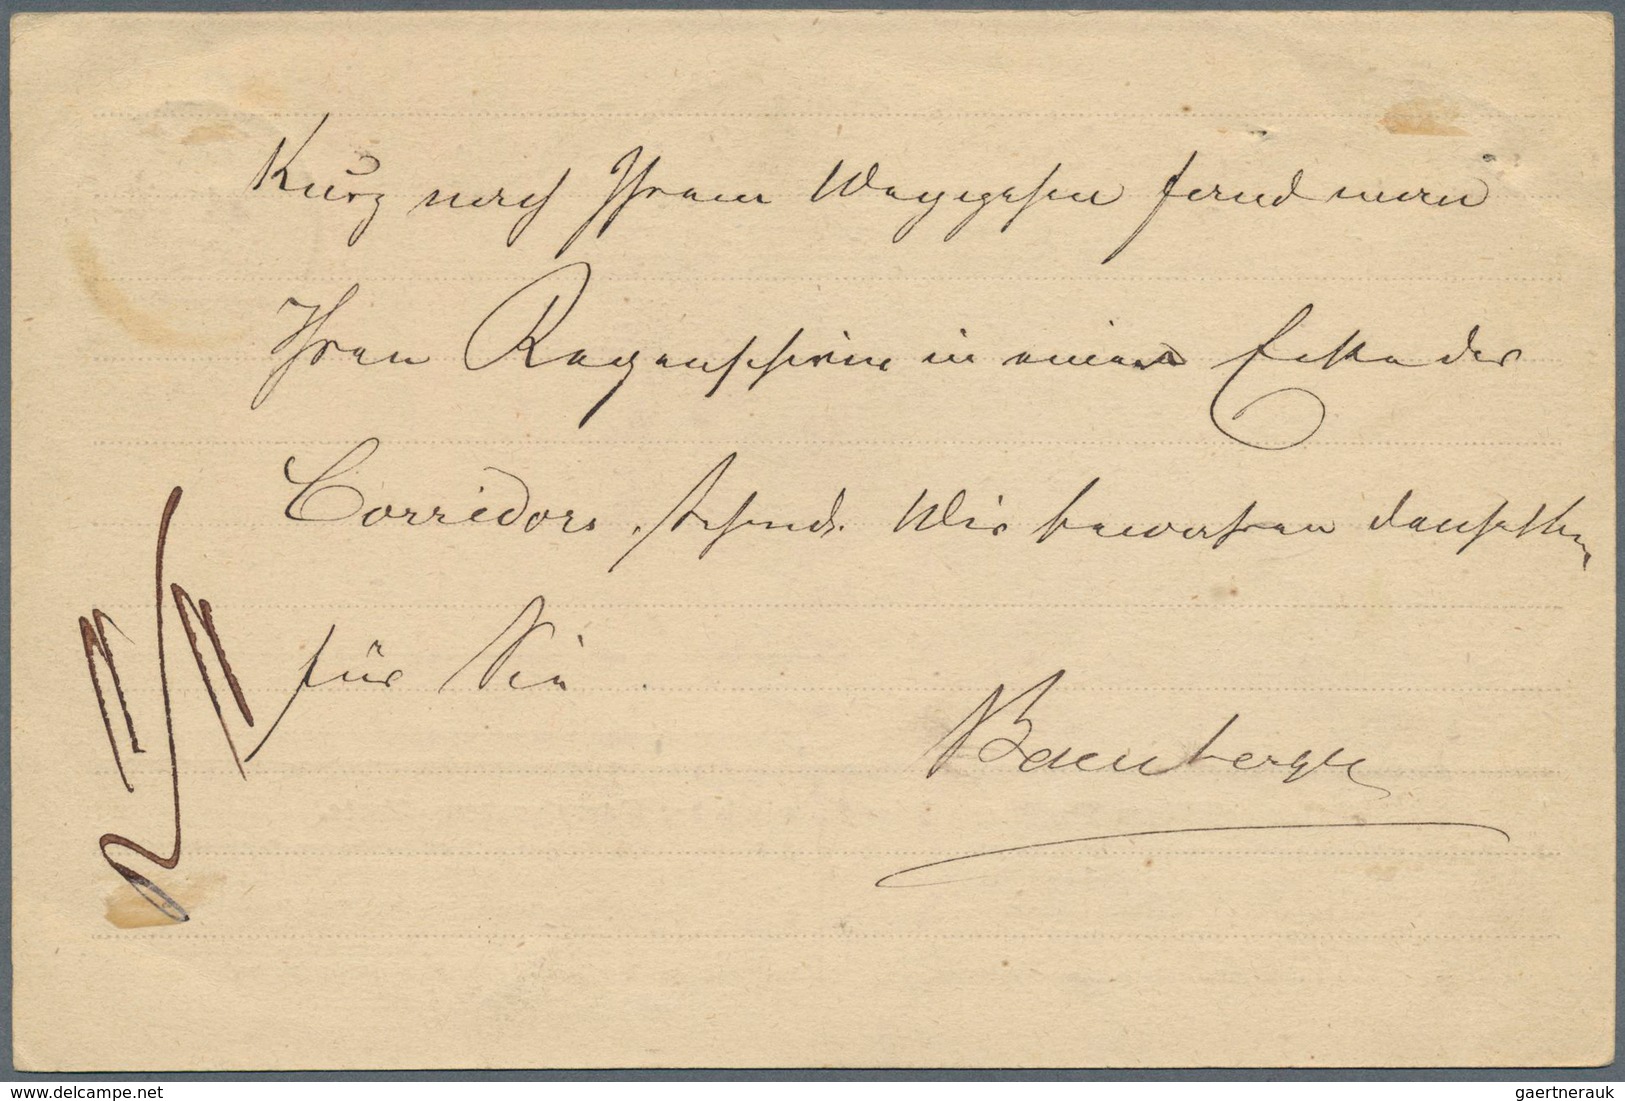 Kurz nach Ihrem Weggehen fand man
Ihren Regenschirm in einer Ecke des
Corridors stehend. Wir bewahren denselben
für Sie.
delcampe.net
gaertnerauk